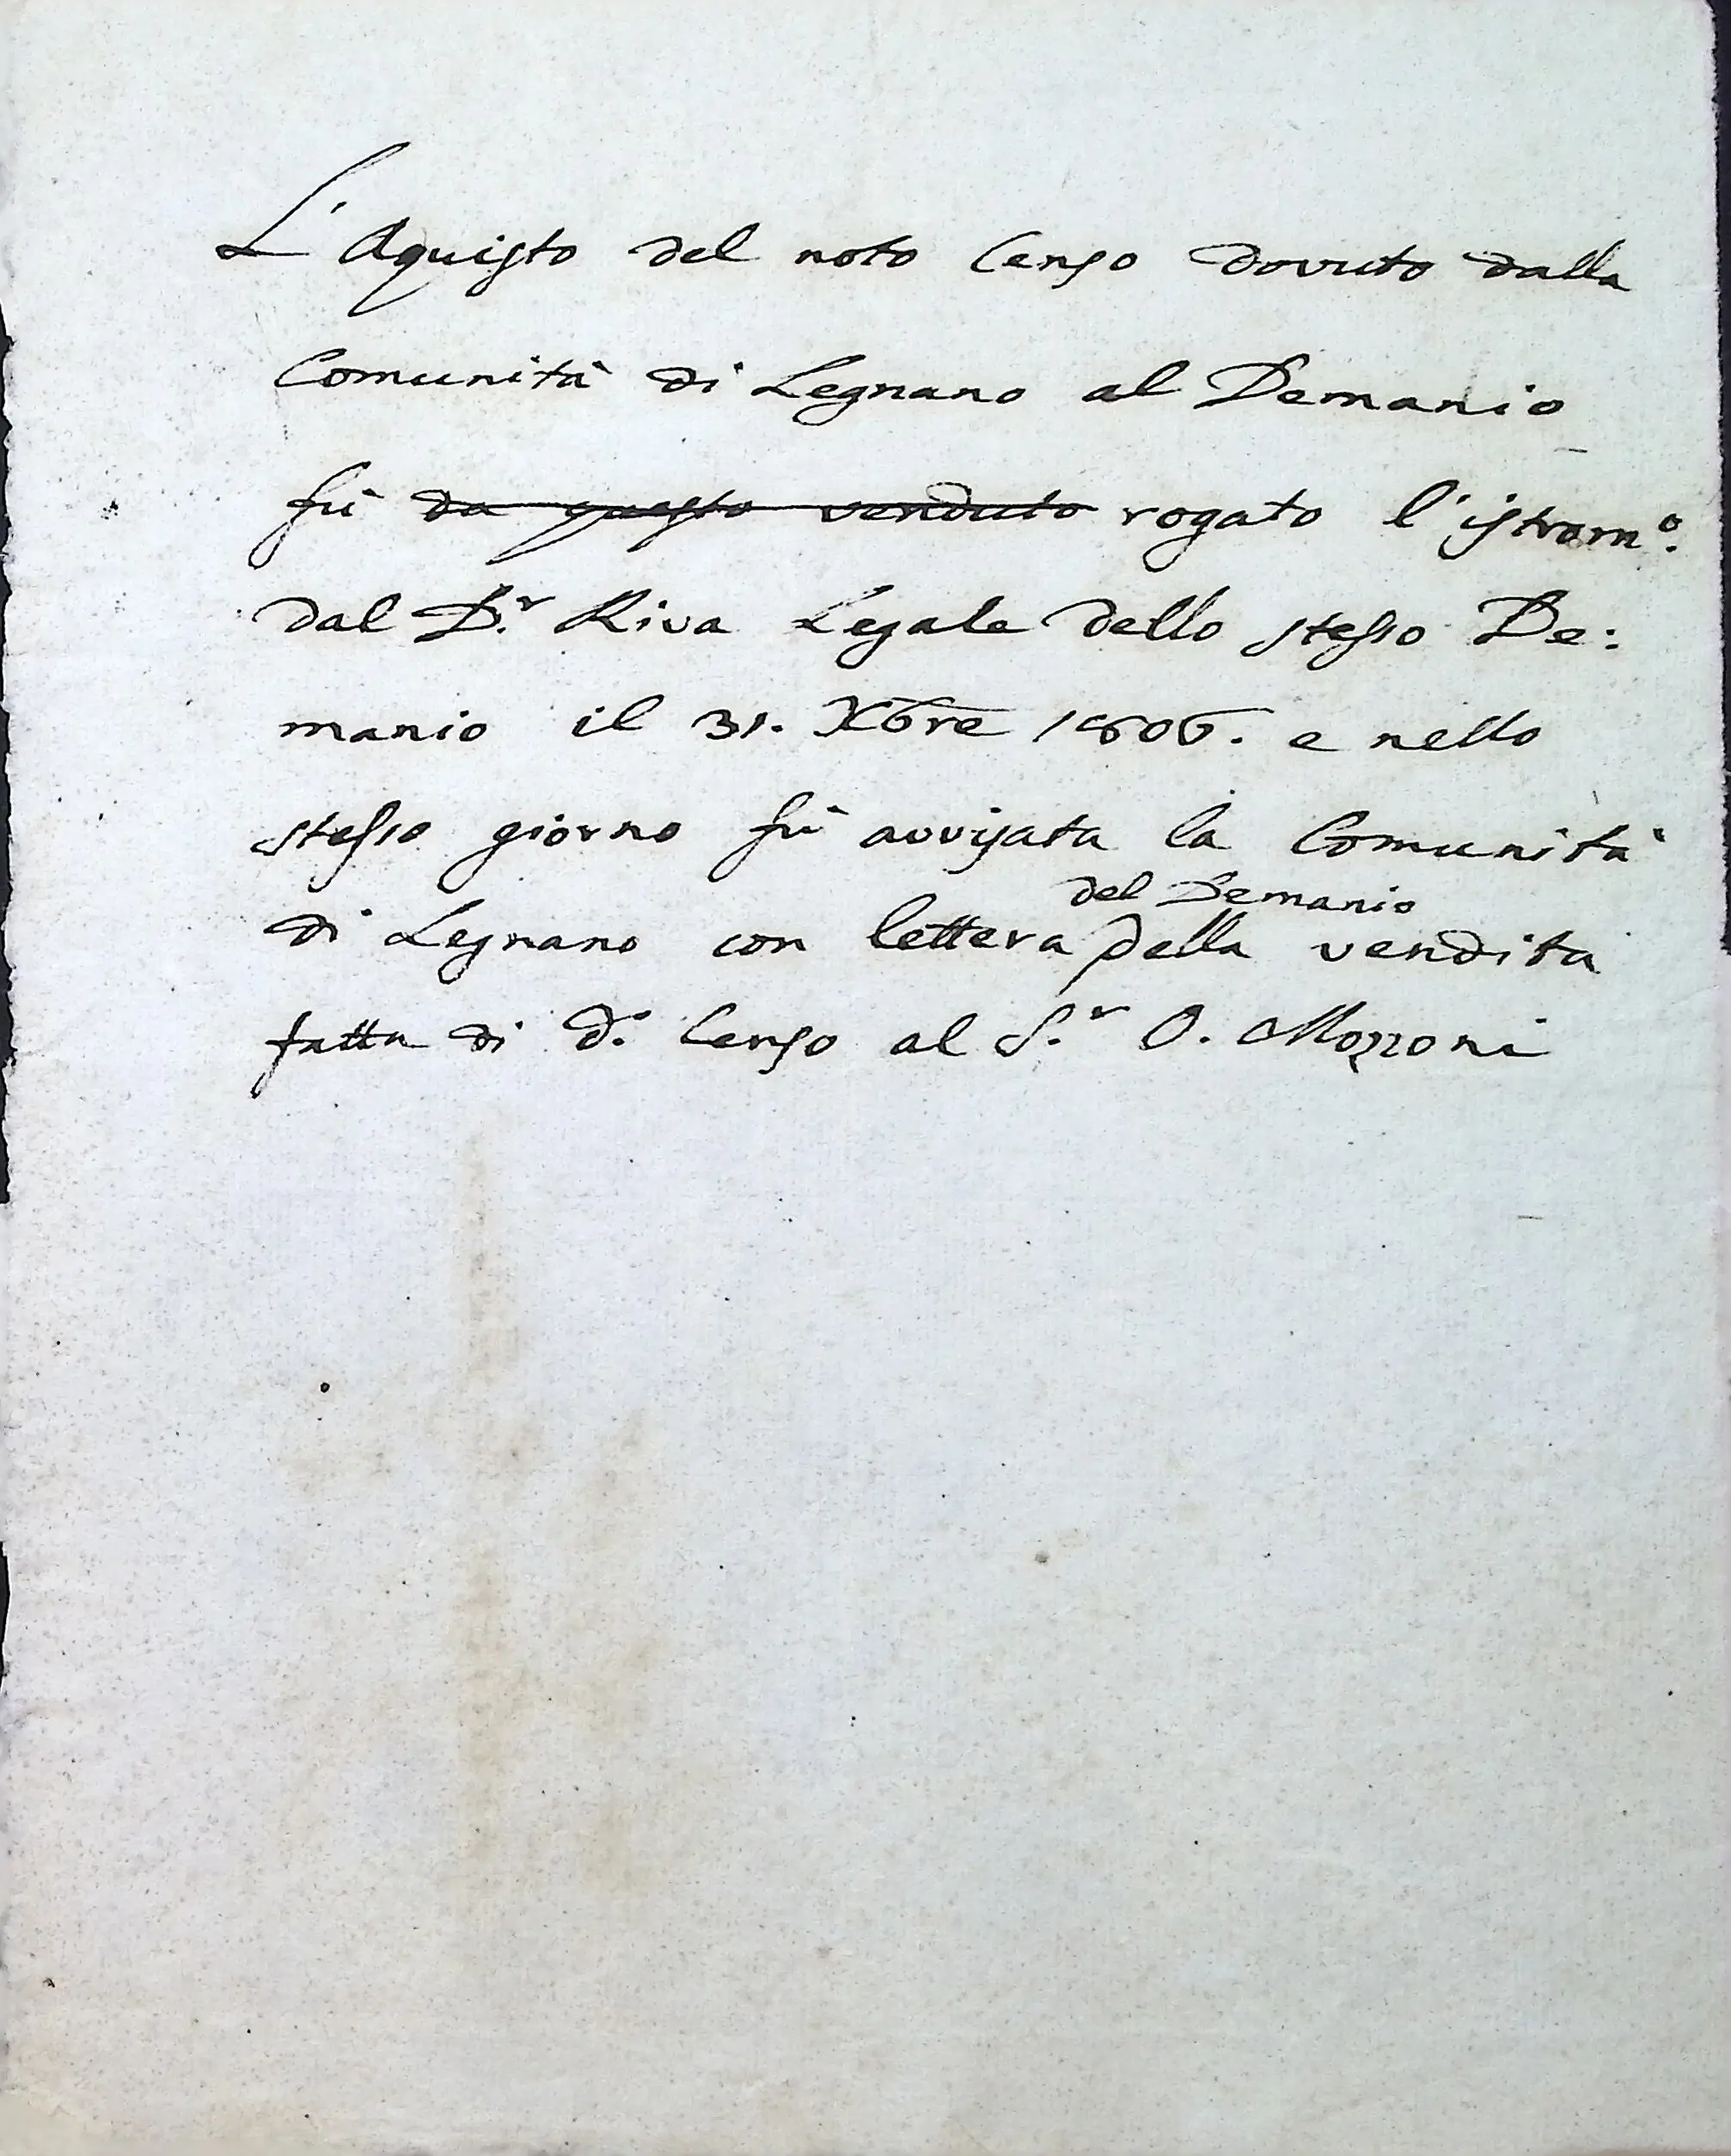 L'Aquisto del noto Censo dovuto dalla
Comunità di Legnano al Demanio
fù da questo venduto rogato l'istrom.º
dal D.r Riva Legale dello stesso De:
manio il 31. Xbre 1806. e nello
stesso giorno fù avvisata la Comunità
del Demanio
di Legnano con lettera della vendita
fatta di d.º Censo al S.r O. Mozzoni